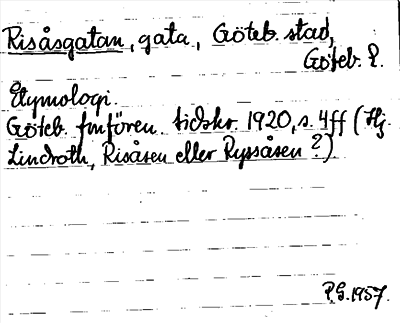 Risåsgatan, gata, Göteb. stad,
Göteb. l.
Etymologi.
Göteb. fmfören. tidskr. 1920, s. 4ff (Hj.
Lindroth, Risåsen eller Ryssåsen?)
P.G. 1957.